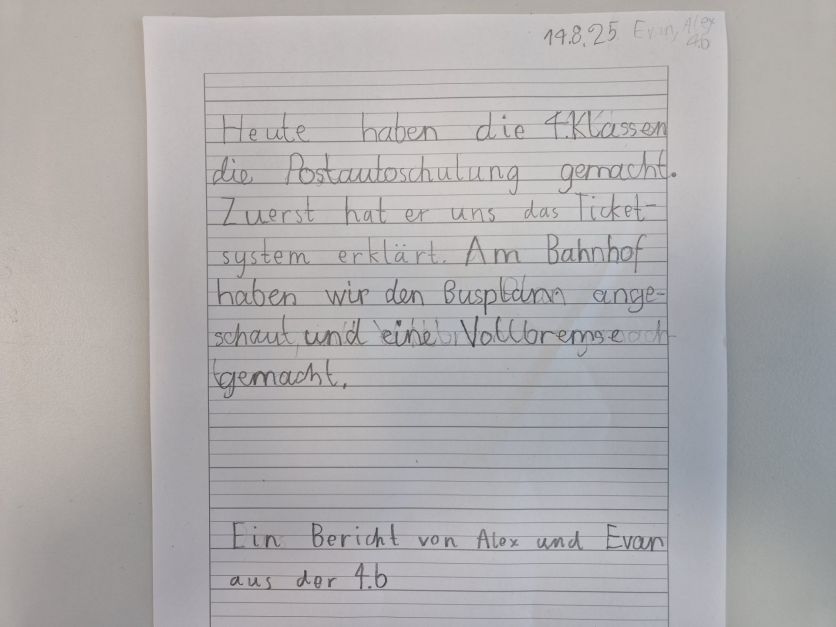 14.8.25 Evan, Alex
4.b
Heute haben die 4.Klassen
die Postautoschulung gemacht.
Zuerst hat er uns das Ticket-
system erklärt. Am Bahnhof
haben wir den Busplan ange-
schaut und eine Vollbremse
gemacht.
Ein Bericht von Alex und Evan
aus der 4.b